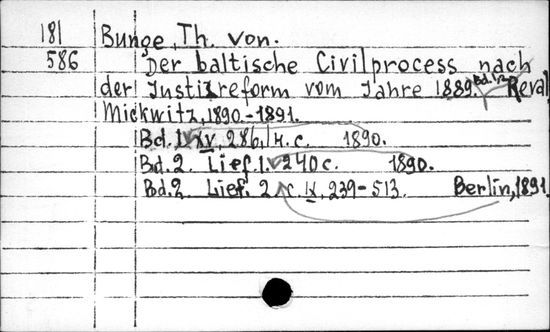 181 Bunge, Th. von.
586 Der baltische Civilprocess nach
der Justizreform vom Jahre 1889. Bd. 1,2 Reval
Mickwitz, 1890.-1891.
Bd. 1. XV, 286, 1 н. с. 1890.
Bd. 2. Lief. 1. 240 с. 1890.
Bd. 2. Lief. 2 с. IX, 239-513. Berlin, 1891.